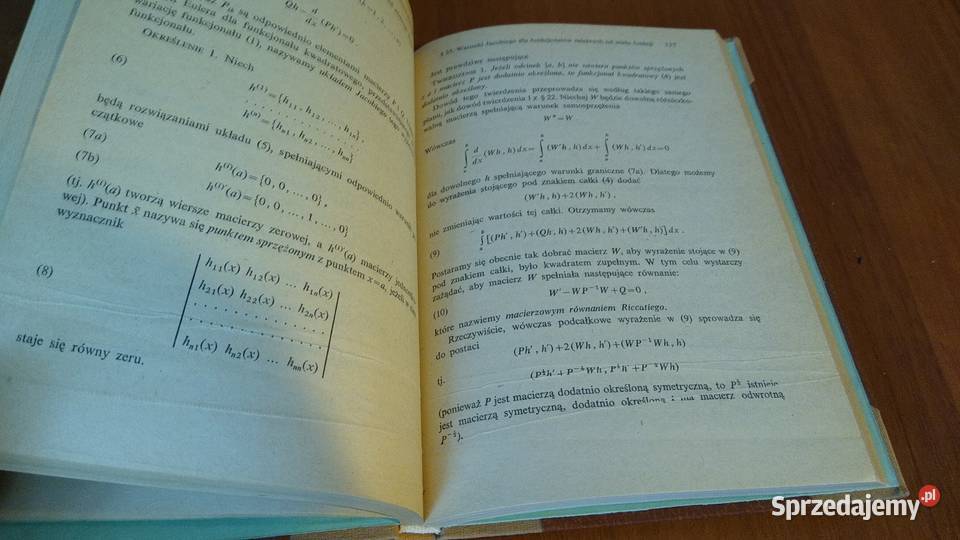 Qh − d/dx (Ph')=0.
są odpowiednio elementami macierzy P i Q
Eulera dla funkcjonału kwadratowego,
wariację funkcjonału (1), nazywamy układem Jacobiego tego
funkcjonału.
OKREŚLENIE 1. Niech
(6)
h⁽¹⁾={h₁₁, h₁₂, ..., h₁ₙ},
. . . . . . . . . .
h⁽ⁿ⁾={hₙ₁, hₙ₂, ..., hₙₙ}
będą rozwiązaniami układu (5), spełniającymi odpowiednio warunki
czątkowe
(7a) h⁽ⁱ⁾(a)={0, 0, ..., 0},
(7b) h⁽ⁱ⁾'(a)={0, 0, ..., 1, ..., 0}
(tj. h⁽ⁱ⁾(a) tworzą wiersze macierzy zerowej, a h⁽ⁱ⁾'(a) macierzy
wej). Punkt x̃ nazywa się punktem sprzężonym z punktem x=a, jeżeli
wyznacznik
(8)
h₁₁(x) h₁₂(x) ... h₁ₙ(x)
h₂₁(x) h₂₂(x) ... h₂ₙ(x)
. . . . . . . . . . . .
hₙ₁(x) hₙ₂(x) ... hₙₙ(x)
staje się równy zeru.
Warunki Jacobiego dla funkcjonałów zależnych od wielu funkcji 137
jest prawdziwe następujące
TWIERDZENIE 1. Jeżeli odcinek [a, b] nie zawiera punktów sprzężonych
z a i macierz P jest dodatnio określona, to funkcjonał kwadratowy (4) jest
dodatnio określony.
Dowód tego twierdzenia przeprowadza się według takiego samego
planu, jak dowód twierdzenia 1 z § 22. Niechaj W będzie dowolną różniczko-
walną macierzą spełniającą warunek samosprzężenia
W*=W
Wówczas
∫ₐᵇ d/dx (Wh, h)dx= ∫ₐᵇ (W'h, h)dx+ ∫ₐᵇ (Wh, h')dx=0
dla dowolnego h spełniającego warunki graniczne (7a). Dlatego możemy
do wyrażenia stojącego pod znakiem całki (4) dodać
(W'h, h)+2(Wh, h'),
nie zmieniając wartości tej całki. Otrzymamy wówczas
(9) ∫ₐᵇ [(Ph', h')+(Qh, h)+2(Wh, h')+(W'h, h)]dx.
Postaramy się obecnie tak dobrać macierz W, aby wyrażenie stojące w (9)
pod znakiem całki, było kwadratem zupełnym. W tym celu wystarczy
zażądać, aby macierz W spełniała następujące równanie:
(10) W'−WP⁻¹W+Q=0,
które nazwiemy macierzowym równaniem Riccatiego.
Rzeczywiście, wówczas podcałkowe wyrażenie w (9) sprowadza się
do postaci
(Ph', h')+2(Wh, h')+(WP⁻¹Wh, h)
tj.
(P^½h'+P^−½Wh, P^½h'+P^−½Wh)
(ponieważ P jest macierzą dodatnio określoną symetryczną, to P^½ istnieje
jest macierzą symetryczną, dodatnio określoną i ma macierz odwrotną
P^−½).
Sprzedajemy.pl